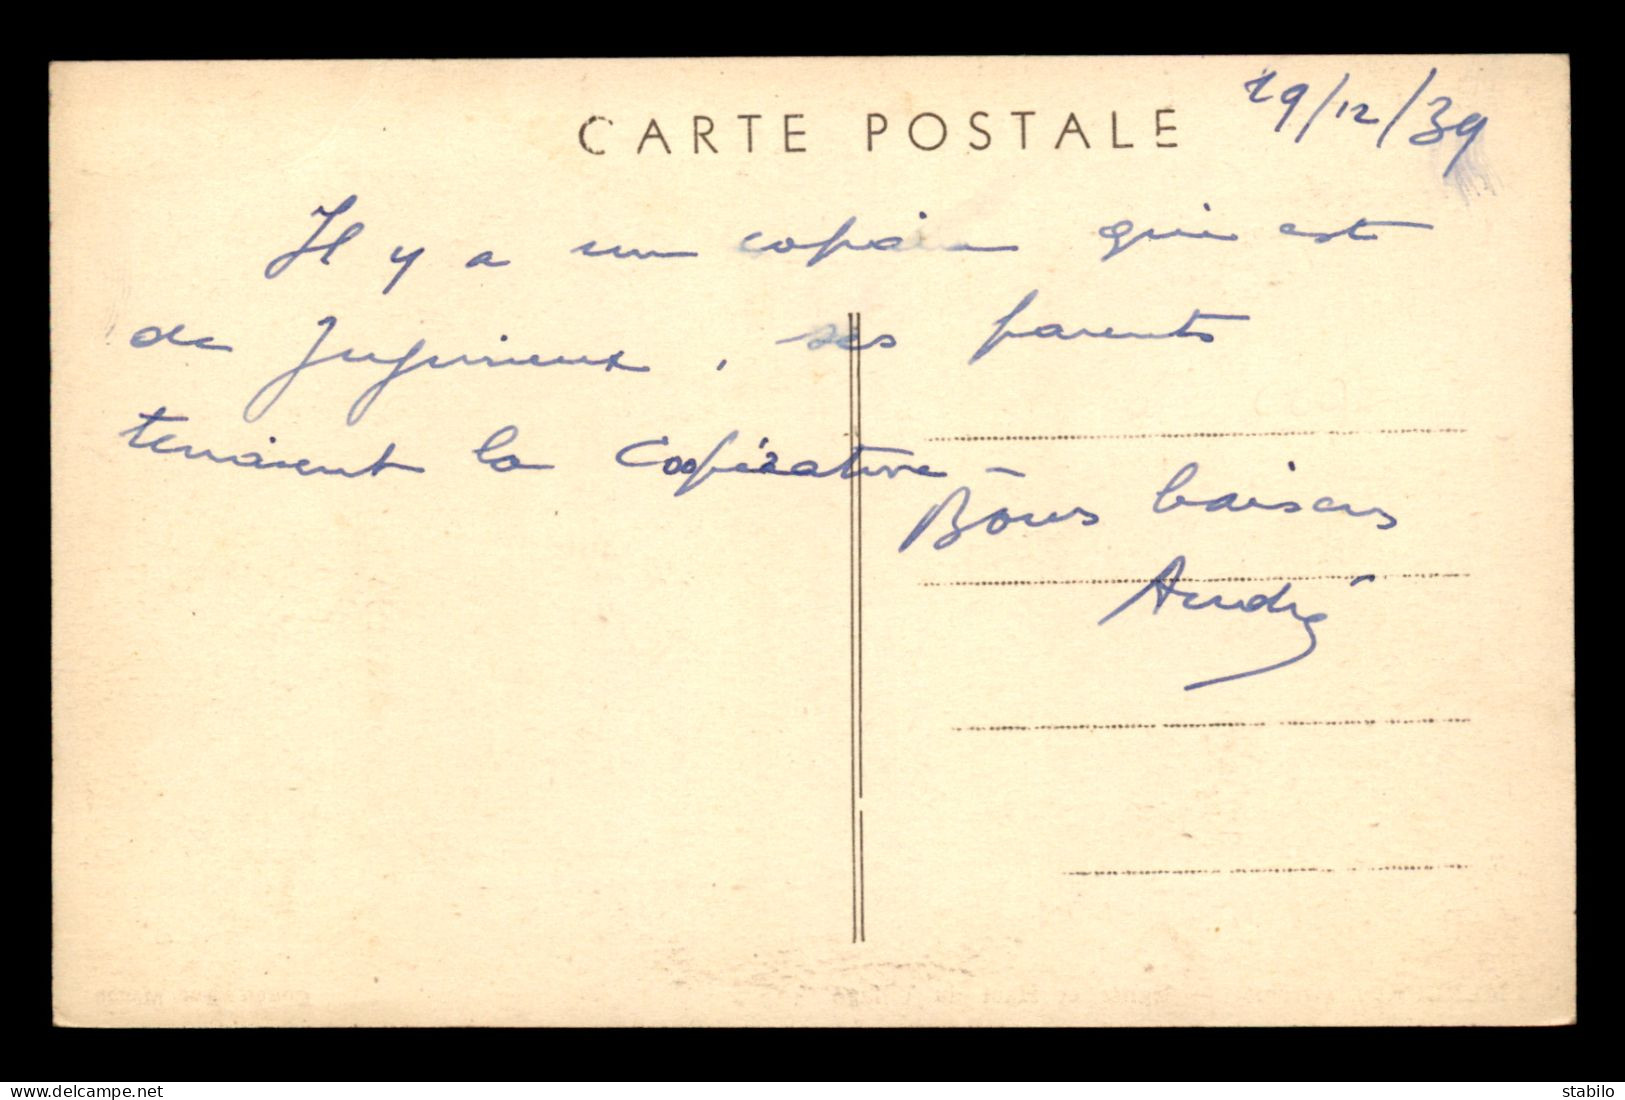 CARTE POSTALE
29/12/39
Il y a un copain qui est
de Jujurieux, ses parents
tenaient la Coopérative -
Bons baisers
André
www.delcampe.net
stabilo